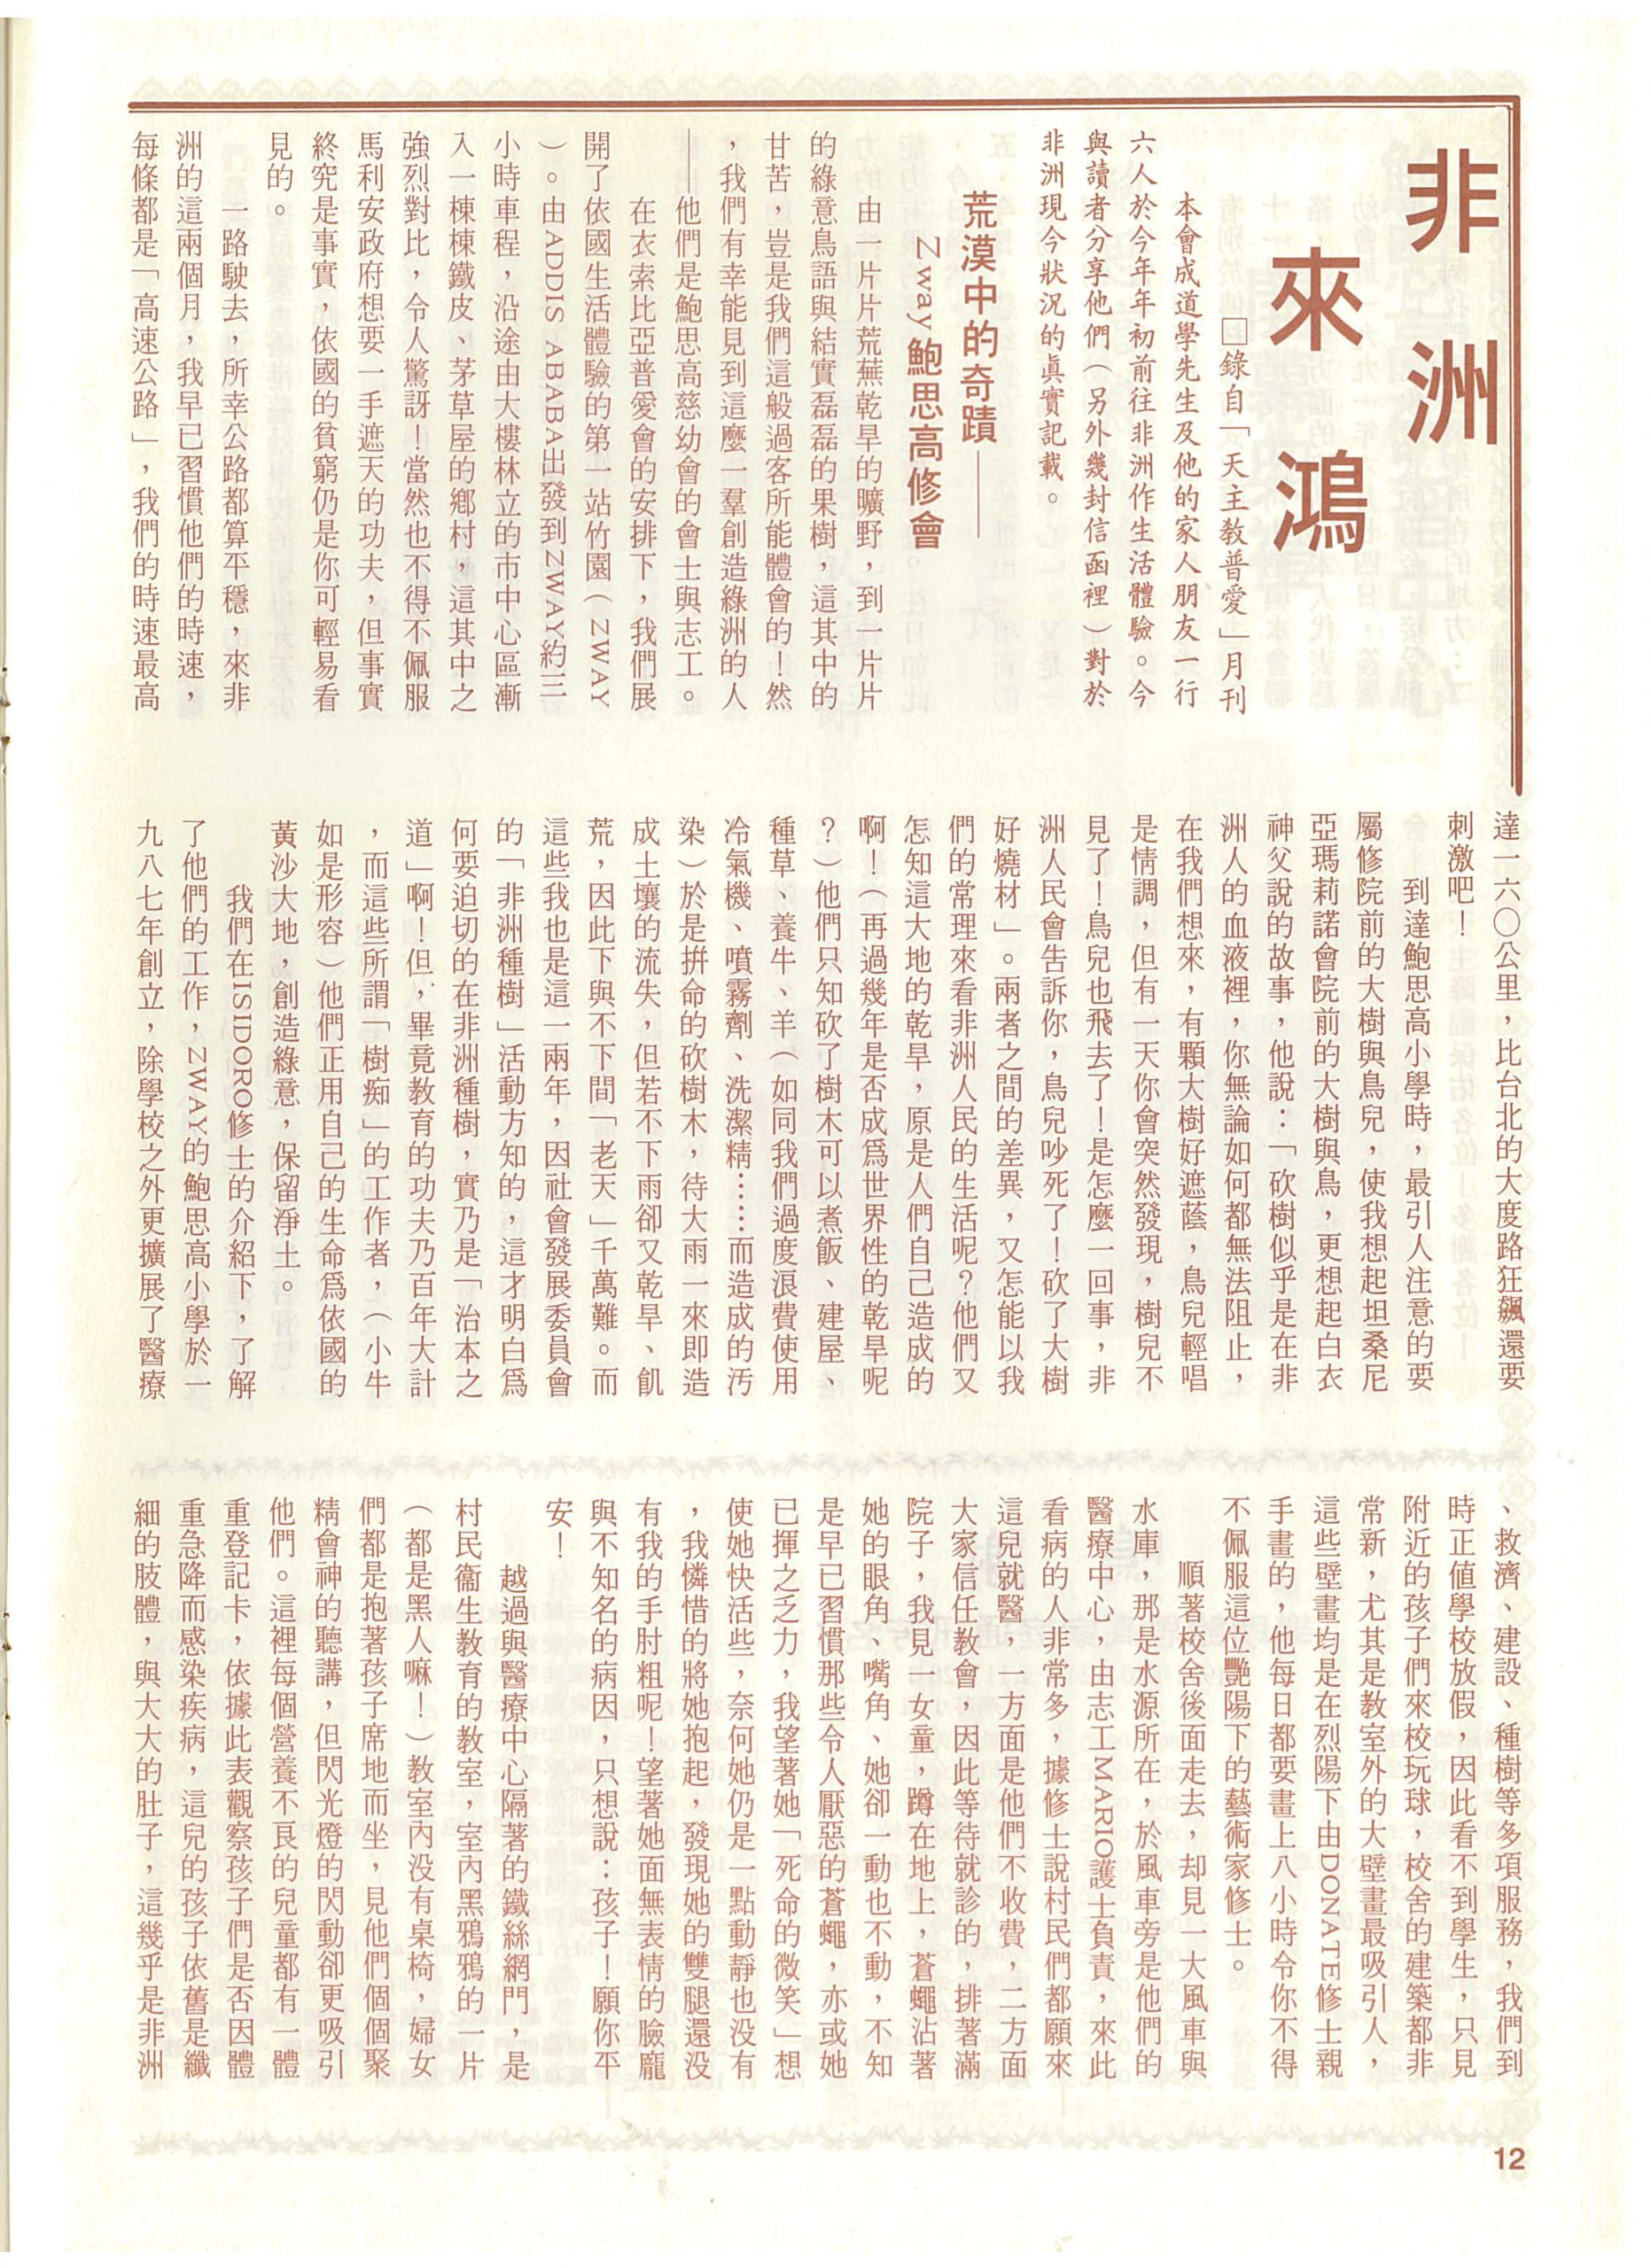 非洲
來鴻
□錄自「天主教普愛」月刊
本會成道學先生及他的家人朋友一行
六人於今年年初前往非洲作生活體驗。今
與讀者分享他們（另外幾封信函裡）對於
非洲現今狀況的眞實記載。
荒漠中的奇蹟——
Zway鮑思高修會
由一片片荒蕪乾旱的曠野，到一片片
的綠意鳥語與結實磊磊的果樹，這其中的
甘苦，豈是我們這般過客所能體會的！然
，我們有幸能見到這麼一羣創造綠洲的人
——他們是鮑思高慈幼會的會士與志工。
在衣索比亞普愛會的安排下，我們展
開了依國生活體驗的第一站竹園（ZWAY
）。由ADDIS ABABA出發到ZWAY約三
小時車程，沿途由大樓林立的市中心區漸
入一棟棟鐵皮、茅草屋的鄉村，這其中之
強烈對比，令人驚訝！當然也不得不佩服
馬利安政府想要一手遮天的功夫，但事實
終究是事實，依國的貧窮仍是你可輕易看
見的。
一路駛去，所幸公路都算平穩，來非
洲的這兩個月，我早已習慣他們的時速，
每條都是「高速公路」，我們的時速最高
達一六〇公里，比台北的大度路狂飆還要
刺激吧！
到達鮑思高小學時，最引人注意的要
屬修院前的大樹與鳥兒，使我想起坦桑尼
亞瑪莉諾會院前的大樹與鳥，更想起白衣
神父說的故事，他說：「砍樹似乎是在非
洲人的血液裡，你無論如何都無法阻止，
在我們想來，有顆大樹好遮蔭，鳥兒輕唱
是情調，但有一天你會突然發現，樹兒不
見了！鳥兒也飛去了！是怎麼一回事，非
洲人民會告訴你，鳥兒吵死了！砍了大樹
好燒材」。兩者之間的差異，又怎能以我
們的常理來看非洲人民的生活呢？他們又
怎知這大地的乾旱，原是人們自己造成的
啊！（再過幾年是否成爲世界性的乾旱呢
？）他們只知砍了樹木可以煮飯、建屋、
種草、養牛、羊（如同我們過度浪費使用
冷氣機、噴霧劑、洗潔精……而造成的汚
染）於是拚命的砍樹木，待大雨一來即造
成土壤的流失，但若不下雨卻又乾旱、飢
荒，因此下與不下間「老天」千萬難。而
這些我也是這一兩年，因社會發展委員會
的「非洲種樹」活動方知的，這才明白爲
何要迫切的在非洲種樹，實乃是「治本之
道」啊！但，畢竟教育的功夫乃百年大計
，而這些所謂「樹痴」的工作者，（小牛
如是形容）他們正用自己的生命爲依國的
黃沙大地，創造綠意，保留淨土。
我們在ISIDORO修士的介紹下，了解
了他們的工作，ZWAY的鮑思高小學於一
九八七年創立，除學校之外更擴展了醫療
、救濟、建設、種樹等多項服務，我們到
時正値學校放假，因此看不到學生，只見
附近的孩子們來校玩球，校舍的建築都非
常新，尤其是教室外的大壁畫最吸引人，
這些壁畫均是在烈陽下由DONATE修士親
手畫的，他每日都要畫上八小時令你不得
不佩服這位艷陽下的藝術家修士。
順著校舍後面走去，却見一大風車與
水庫，那是水源所在，於風車旁是他們的
醫療中心，由志工MARIO護士負責，來此
看病的人非常多，據修士說村民們都願來
這兒就醫，一方面是他們不收費，二方面
大家信任教會，因此等待就診的，排著滿
院子，我見一女童，蹲在地上，蒼蠅沾著
她的眼角、嘴角、她卻一動也不動，不知
是早已習慣那些令人厭惡的蒼蠅，亦或她
已揮之乏力，我望著她「死命的微笑」想
使她快活些，奈何她仍是一點動靜也没有
，我憐惜的將她抱起，發現她的雙腿還没
有我的手肘粗呢！望著她面無表情的臉龐
與不知名的病因，只想說：孩子！願你平
安！
越過與醫療中心隔著的鐵絲網門，是
村民衞生教育的教室，室內黑鴉鴉的一片
（都是黑人嘛！）教室內没有桌椅，婦女
們都是抱著孩子席地而坐，見他們個個聚
精會神的聽講，但閃光燈的閃動卻更吸引
他們。這裡每個營養不良的兒童都有一體
重登記卡，依據此表觀察孩子們是否因體
重急降而感染疾病，這兒的孩子依舊是纖
細的肢體，與大大的肚子，這幾乎是非洲
12